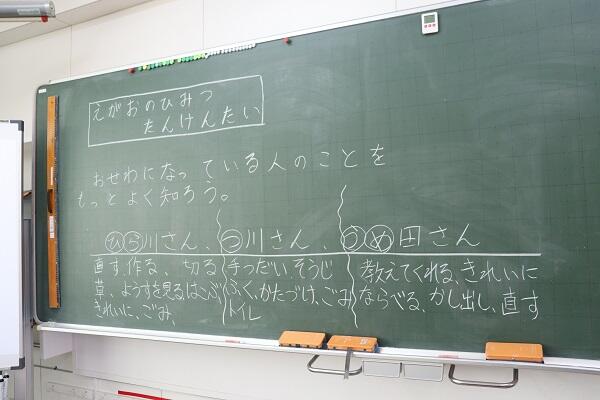 えがおのひみつ
たんけんたい
おせわになっている人のことを
もっとよく知ろう。
ひら川さん、つ川さん、うめ田さん
直す、作る、切る
草、ようすを見る、はこぶ
きれいに、ごみ、
手つだい、そうじ
ふく、かたづけ、ごみ
トイレ
教えてくれる、きれいに
ならべる、かし出し、直す